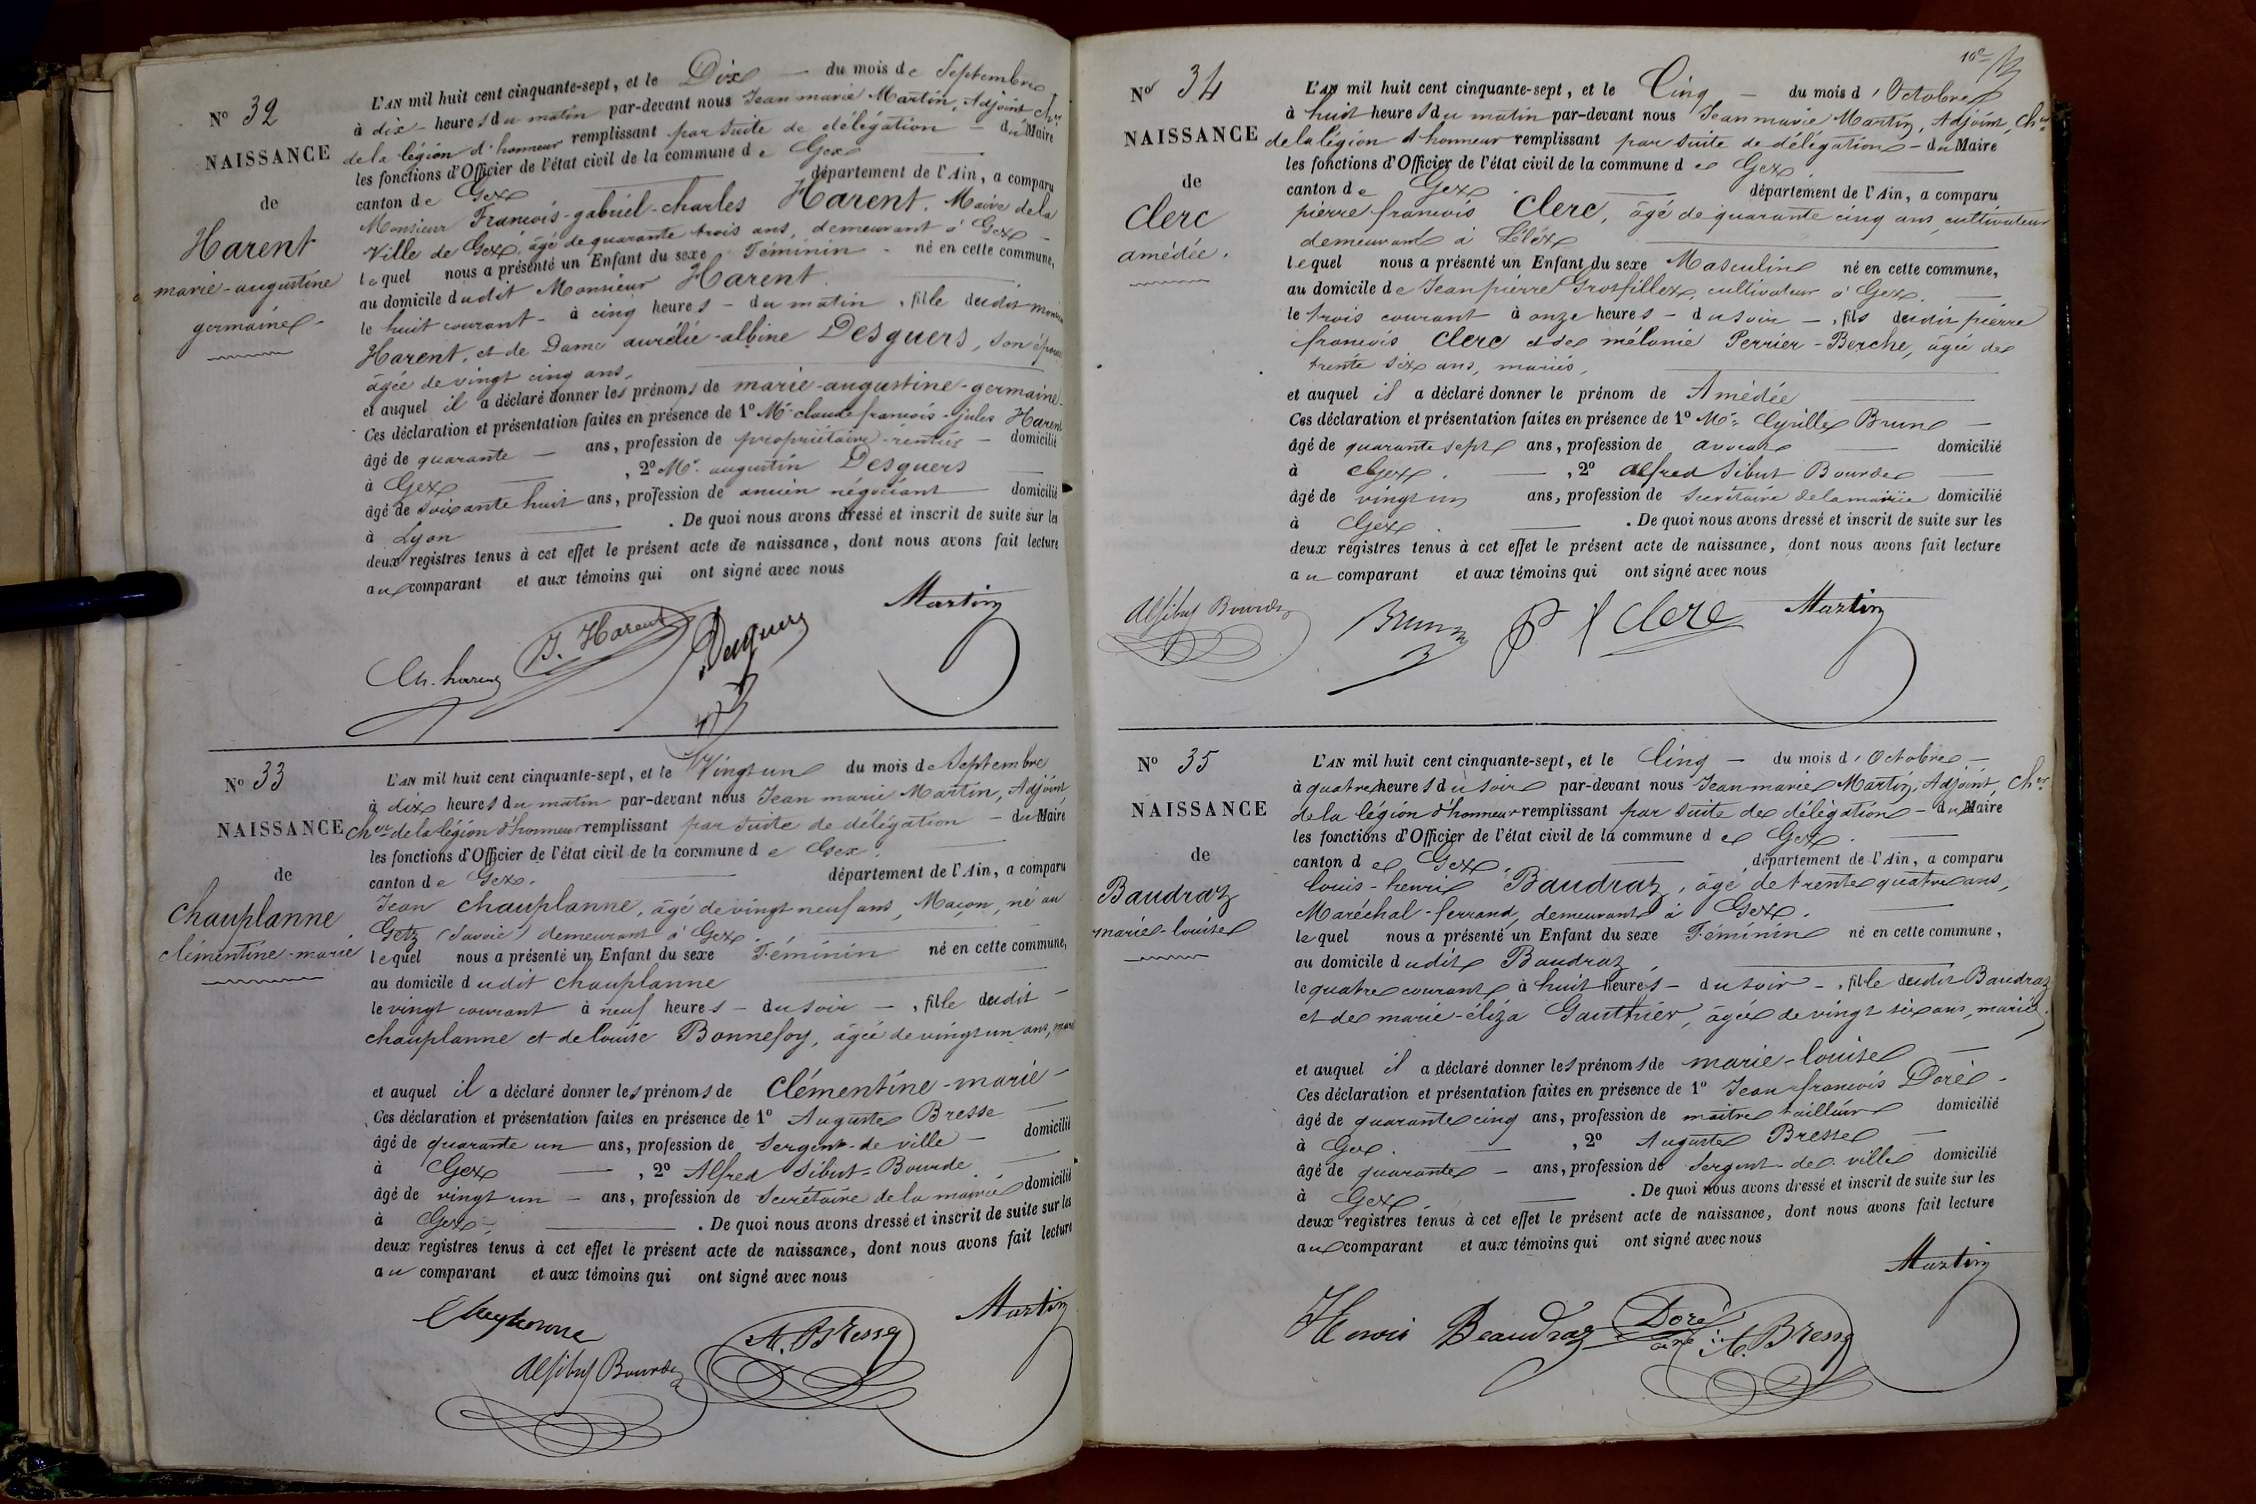 N° 32
NAISSANCE
de
Harent
marie-augustine
germaine
L'AN mil huit cent cinquante-sept, et le Dix — du mois de Septembre
à dix heures du matin par-devant nous Jean marie Martin, Adjoint, Cher
de la légion d'honneur remplissant par suite de délégation — du Maire
les fonctions d'Officier de l'état civil de la commune de Gex
canton de Gex département de l'Ain, a comparu
Monsieur François-gabriel-charles Harent, Maire de la
Ville de Gex, âgé de quarante trois ans, demeurant à Gex —
lequel nous a présenté un Enfant du sexe Féminin - né en cette commune,
au domicile dudit Monsieur Harent.
le huit courant - à cinq heures - du matin, fille dudit Monsieur
Harent, et de Dame aurélie-albine Desguers, son épouse
âgée de vingt cinq ans,
et auquel il a déclaré donner les prénoms de marie-augustine-germaine-
Ces déclaration et présentation faites en présence de 1° Mr claude françois-jules Harent
âgé de quarante — ans, profession de propriétaire-rentier — domicilié
à Gex — , 2° Mr. augustin Desguers
âgé de soixante huit ans, profession de ancien négociant domicilié
à Lyon — . De quoi nous avons dressé et inscrit de suite sur les
deux registres tenus à cet effet le présent acte de naissance, dont nous avons fait lecture
au comparant et aux témoins qui ont signé avec nous
Martin
J. Harent
Desguers
Ch. harent
N° 33
NAISSANCE
de
Chauplanne
clémentine-marie
L'AN mil huit cent cinquante-sept, et le Vingt un du mois de Septembre
à dix heures du matin par-devant nous Jean marie Martin, Adjoint,
Cher de la légion d'honneur remplissant par suite de délégation — du Maire
les fonctions d'Officier de l'état civil de la commune de Gex.
canton de Gex. département de l'Ain, a comparu
Jean chauplanne, âgé de vingt neuf ans, Maçon, né au
Getz (Savoie) demeurant à Gex
lequel nous a présenté un Enfant du sexe Féminin né en cette commune,
au domicile dudit chauplanne
le vingt courant à neuf heures - du soir —, fille dudit —
chauplanne et de louise Bonnefoy, âgée de vingt un ans,
et auquel il a déclaré donner les prénoms de clémentine-marie-
Ces déclaration et présentation faites en présence de 1° Auguste Bresse
âgé de quarante un ans, profession de Sergent-de ville — domicilié
à Gex — , 2° Alfred Sibut-Bourde
âgé de vingt un — ans, profession de Secrétaire de la mairie domicilié
à Gex — . De quoi nous avons dressé et inscrit de suite sur les
deux registres tenus à cet effet le présent acte de naissance, dont nous avons fait lecture
au comparant et aux témoins qui ont signé avec nous
Martin
A. Bresse
Alf Sibut Bourde
N° 34
NAISSANCE
de
Clerc
amédée.
L'AN mil huit cent cinquante-sept, et le Cinq — du mois d'Octobre
à huit heures du matin par-devant nous Jean marie Martin, Adjoint, Cher
de la légion d'honneur remplissant par suite de délégation — du Maire
les fonctions d'Officier de l'état civil de la commune de Gex.
canton de Gex département de l'Ain, a comparu
pierre françois Clerc, âgé de quarante cinq ans, cultivateur
demeurant à
lequel nous a présenté un Enfant du sexe Masculin né en cette commune,
au domicile de Jean pierre Grosfillex, cultivateur à Gex.
le trois courant à onze heures - du soir —, fils dudit pierre
françois Clerc et de mélanie Perrier-Berche, âgée de
trente six ans, mariés,
et auquel il a déclaré donner le prénom de Amédée
Ces déclaration et présentation faites en présence de 1° Mr. Cyrille Brun —
âgé de quarante sept ans, profession de avocat domicilié
à Gex. — , 2° Alfred Sibut Bourde
âgé de vingt un ans, profession de Secrétaire de la mairie domicilié
à Gex. — . De quoi nous avons dressé et inscrit de suite sur les
deux registres tenus à cet effet le présent acte de naissance, dont nous avons fait lecture
au comparant et aux témoins qui ont signé avec nous
Alf Sibut Bourde
Brun
P f Clerc
Martin
N° 35
NAISSANCE
de
Baudraz
marie-louise
L'AN mil huit cent cinquante-sept, et le Cinq — du mois d'Octobre —
à quatre heures du soir par-devant nous Jean marie Martin, Adjoint, Cher
de la légion d'honneur remplissant par suite de délégation — du Maire
les fonctions d'Officier de l'état civil de la commune de Gex.
canton de Gex, département de l'Ain, a comparu
louis-henri Baudraz, âgé de trente quatre ans,
Maréchal-ferrand, demeurant à Gex.
lequel nous a présenté un Enfant du sexe Féminin né en cette commune,
au domicile dudit Baudraz
le quatre courant à huit heures - du soir —, fille dudit Baudraz
et de marie-éliza Gauthier, âgée de vingt six ans, mariés.
et auquel il a déclaré donner les prénoms de marie-louise
Ces déclaration et présentation faites en présence de 1° Jean françois Doré -
âgé de quarante cinq ans, profession de maître tailleur domicilié
à Gex. — , 2° Auguste Bresse
âgé de quarante — ans, profession de Sergent-de ville domicilié
à Gex — . De quoi nous avons dressé et inscrit de suite sur les
deux registres tenus à cet effet le présent acte de naissance, dont nous avons fait lecture
au comparant et aux témoins qui ont signé avec nous
Martin
Henri Beaudraz
Doré
A. Bresse